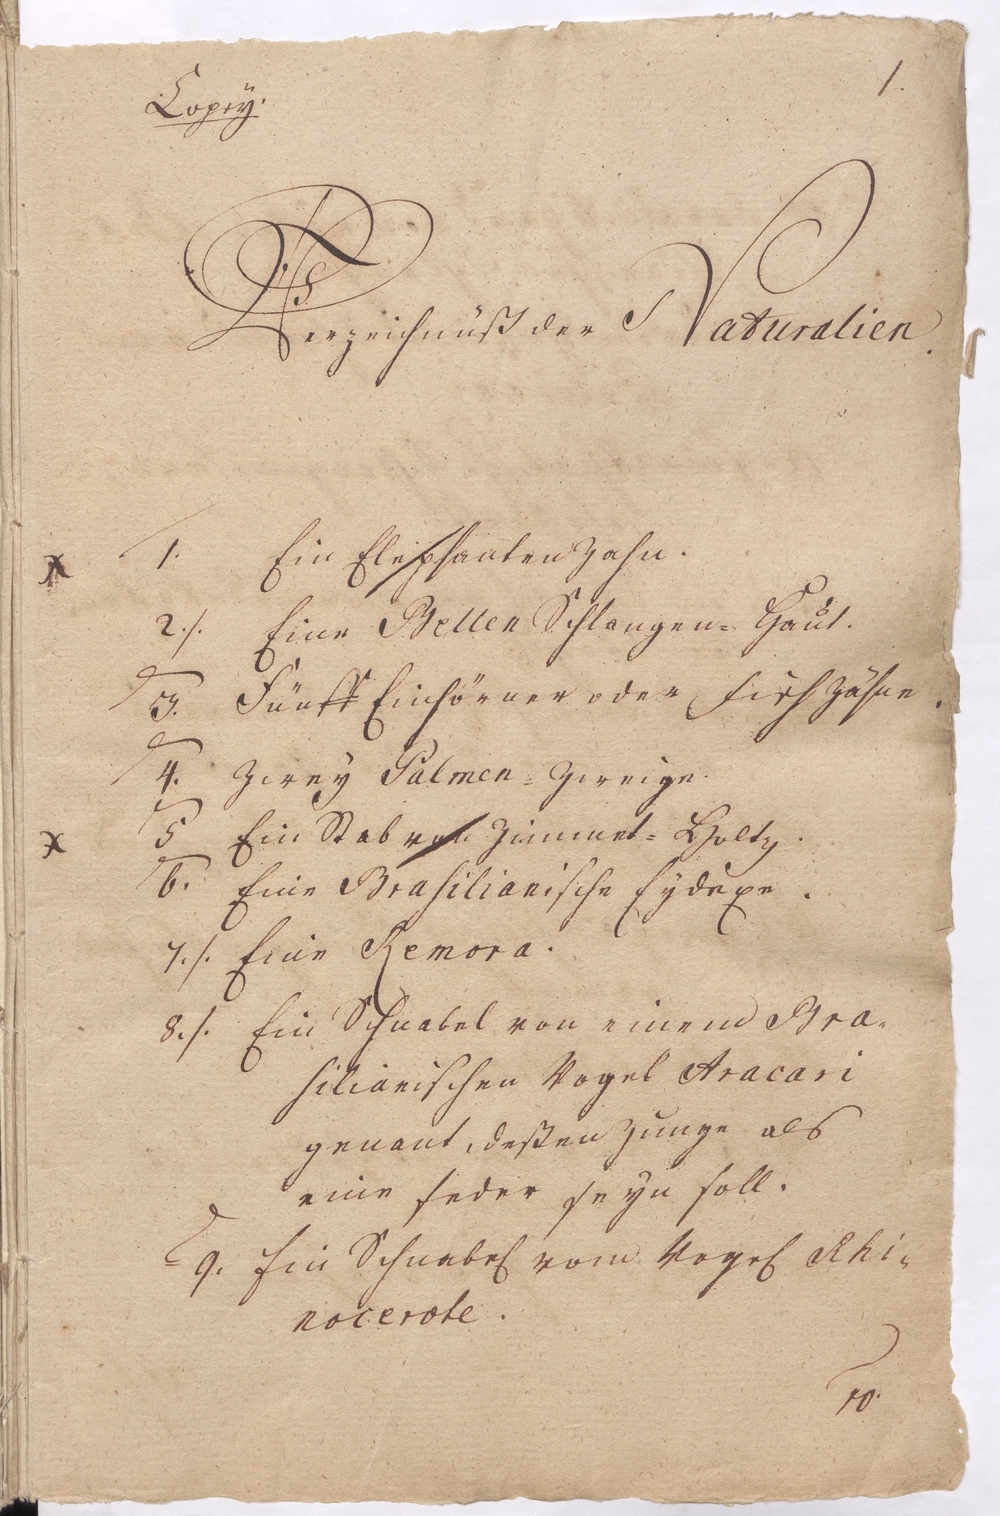 Copey.
1.
Verzeichnüß der Naturalien.
1. Ein Elephanten Zahn.
2./. Eine Bellen Schlangen= Haut.
3. Fünff Einhörner oder Fisch Zähne.
4. Zwey Palmen= Zweige.
5 Ein Stab von Zimmet= Holtz.
6. Eine Brasilianische Eydexe.
7./. Eine Remora.
8./. Ein Schnabel von einem Bra-
silianischen Vogel Aracari
genant, deßen Zunge als
eine feder seyn soll.
9. Ein Schnabel vom Vogel Rhi-
nocerote.
10.